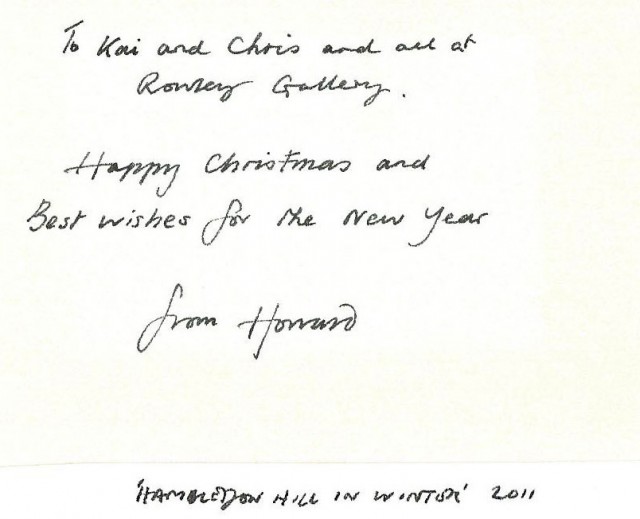 To Kai and Chris and all at
Rowley Gallery.
Happy Christmas and
Best wishes for the New Year
from Howard
'HAMBLEDON HILL IN WINTER' 2011